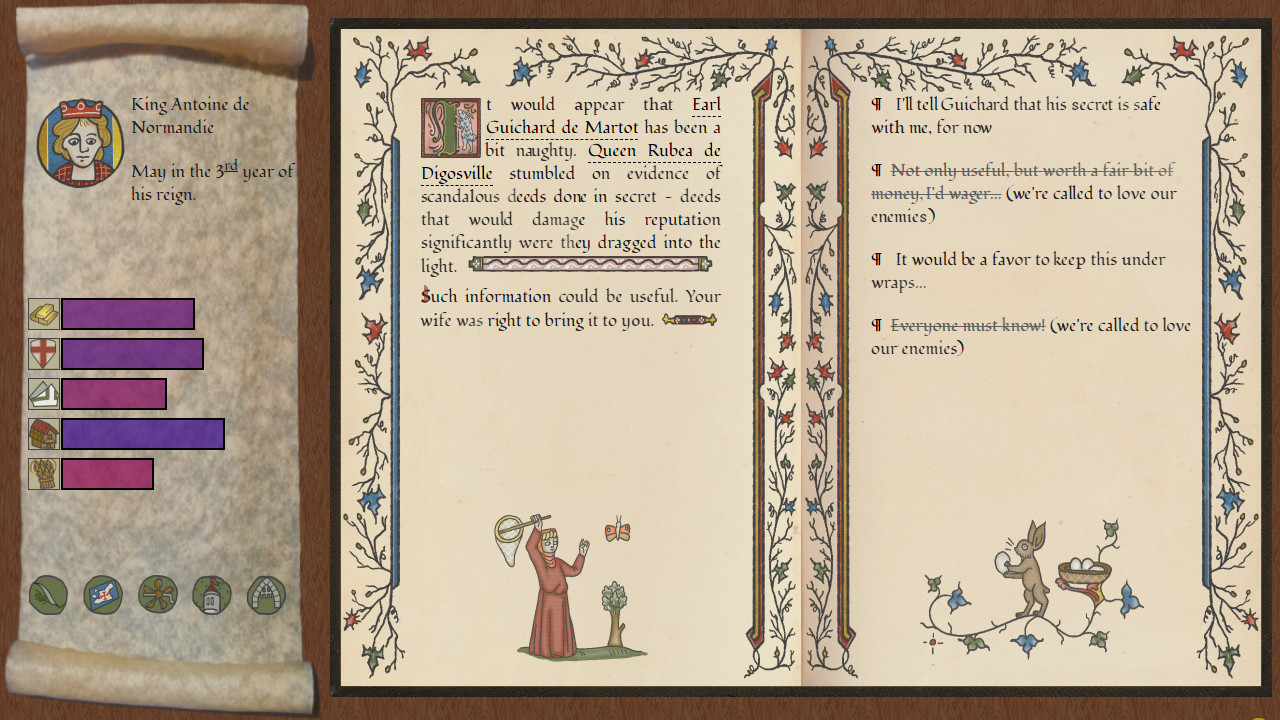 King Antoine de
Normandie
May in the 3rd year of
his reign.
It would appear that Earl
Guichard de Martot has been a
bit naughty. Queen Rubea de
Digosville stumbled on evidence of
scandalous deeds done in secret - deeds
that would damage his reputation
significantly were they dragged into the
light.
Such information could be useful. Your
wife was right to bring it to you.
¶ I'll tell Guichard that his secret is safe
with me, for now
¶ Not only useful, but worth a fair bit of
money, I'd wager... (we're called to love our
enemies)
¶ It would be a favor to keep this under
wraps...
¶ Everyone must know! (we're called to love
our enemies)